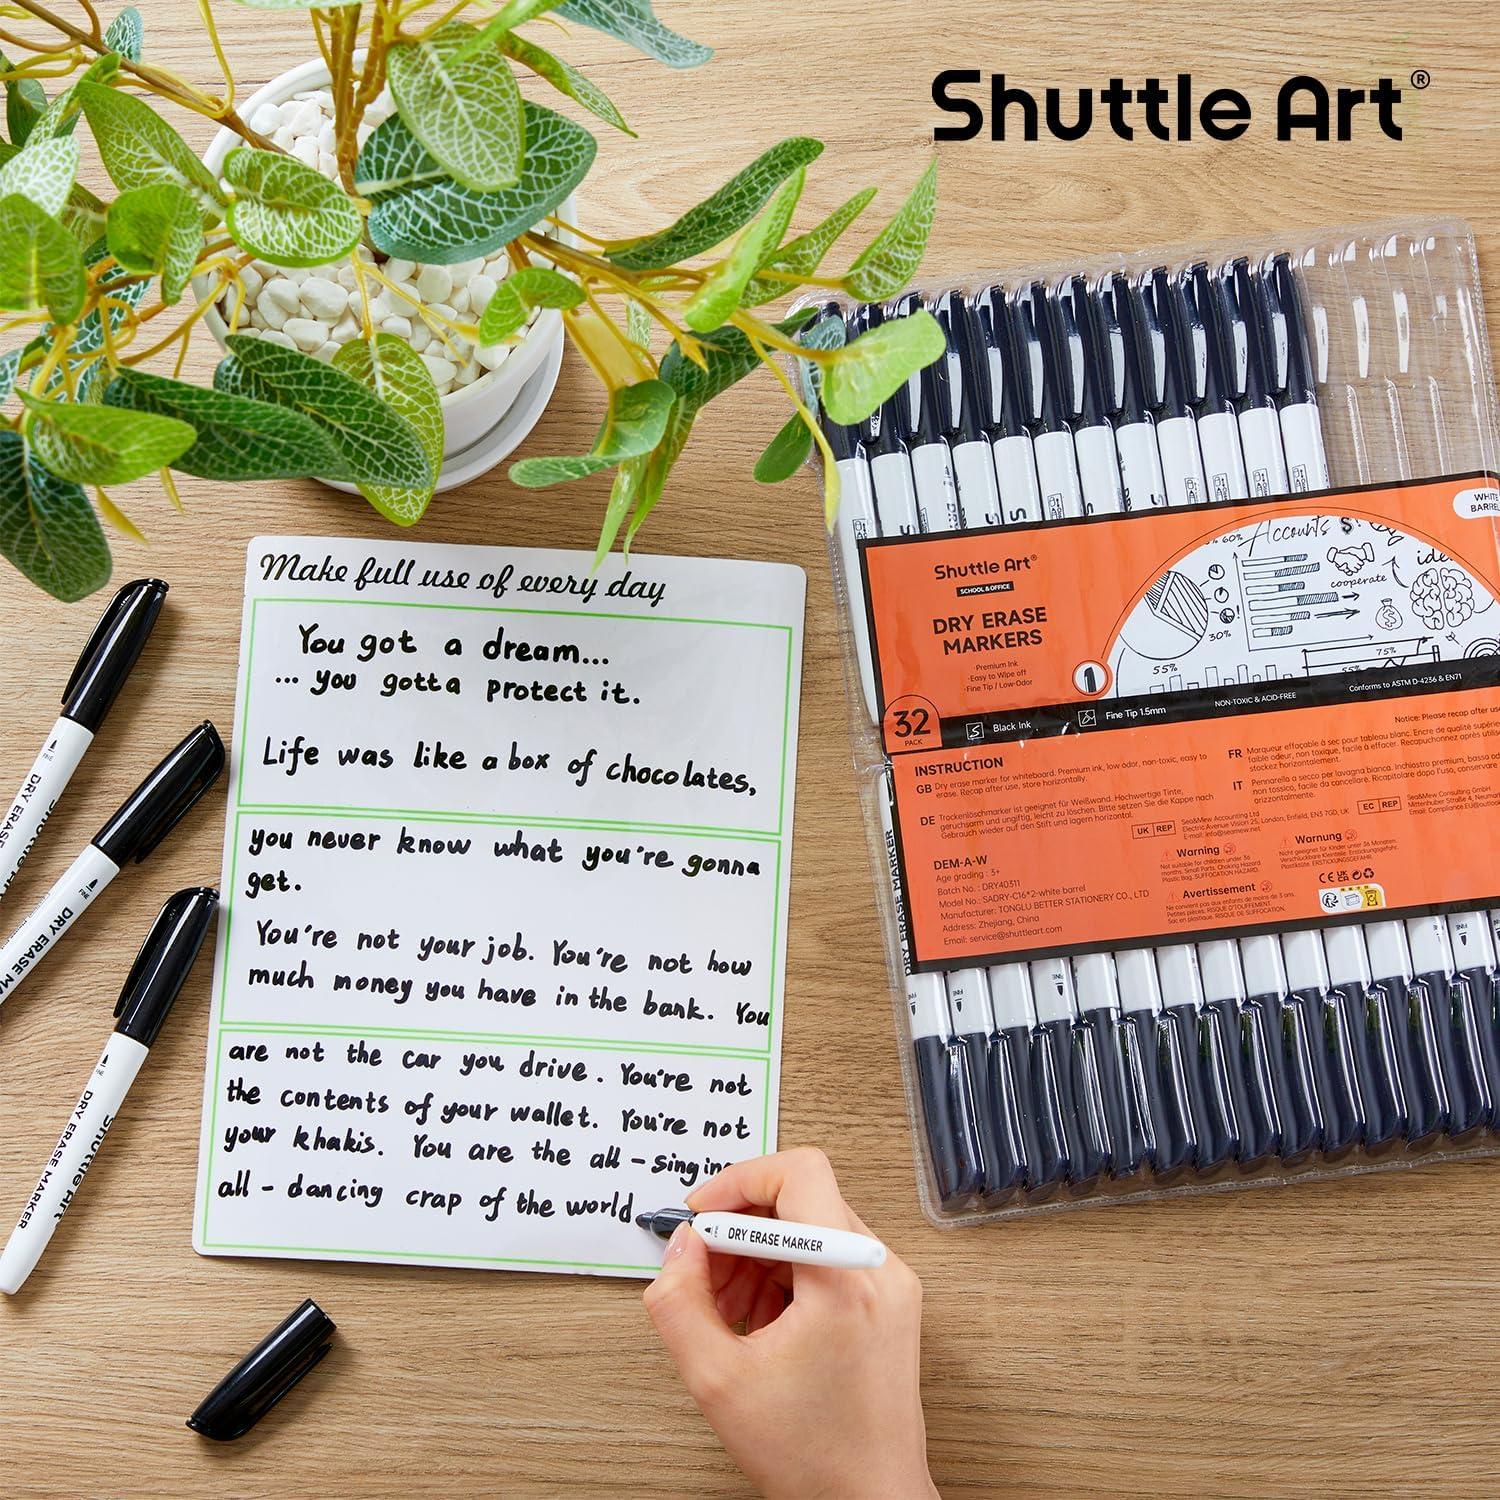 Shuttle Art®
Make full use of every day
You got a dream...
... you gotta protect it.
Life was like a box of chocolates,
you never know what you're gonna
get.
You're not your job. You're not how
much money you have in the bank. You
are not the car you drive. You're not
the contents of your wallet. You're not
your khakis. You are the all-singing
all-dancing crap of the world
DRY ERASE MARKER
FINE
DRY ERASE MARKER
FINE
DRY ERASE MA
FINE
Shuttle Art
DRY ERASE MARKER
WHITE
BARREL
Shuttle Art®
SCHOOL & OFFICE
DRY ERASE
MARKERS
·Premium Ink
·Easy to Wipe off
·Fine Tip / Low-Odor
60%
Accounts $
cooperate
30%
55%
75%
55%
32
PACK
Black Ink
Fine Tip 1.5mm
NON-TOXIC & ACID-FREE
Conforms to ASTM D-4236 & EN71
Notice: Please recap after use
INSTRUCTION
GB Dry erase marker for whiteboard. Premium ink, low odor, non-toxic, easy to
erase. Recap after use, store horizontally.
DE Trockenlöschmarker ist geeignet für Weißwand. Hochwertige Tinte,
geruchsarm und ungiftig, leicht zu löschen. Bitte setzen Sie die Kappe nach
Gebrauch wieder auf den Stift und lagern horizontal.
FR Marqueur effaçable à sec pour tableau blanc. Encre de qualité supérieure
faible odeur, non toxique, facile à effacer. Recapuchonnez après
stockez horizontalement.
IT Pennarello a secco per lavagna bianca. Inchiostro premium, basso
non tossico, facile da cancellare. Ricapitolare dopo l'uso, conservare
orizzontalmente.
UK REP
Sea&Mew Accounting Ltd
Electric Avenue Vision 25, London, Enfield, EN3 7GD, UK
E-mail: info@seamew.net
EC REP
Sea&Mew Consulting GmbH
DEM-A-W
Age grading : 3+
Batch No. : DRY40311
Model No.: SADRY-C16*2-white barrel
Manufacturer: TONGLU BETTER STATIONERY CO., LTD
Address: Zhejiang, China
Email: service@shuttleart.com
Warning
Not suitable for children under 36
months. Small Parts. Choking Hazard.
Plastic Bag. SUFFOCATION HAZARD.
Warnung
Nicht geeignet für Kinder unter 36 Monaten.
Verschluckbare Kleinteile. Erstickungsgefahr.
Plastiktüte. ERSTICKUNGSGEFAHR.
Avertissement
Ne convient pas aux enfants de moins de 3 ans.
Petites pièces. RISQUE D'ÉTOUFFEMENT.
Sac en plastique. RISQUE DE SUFFOCATION.
CE UK CA
DRY ERASE MARKER
FINE
FINE
FINE